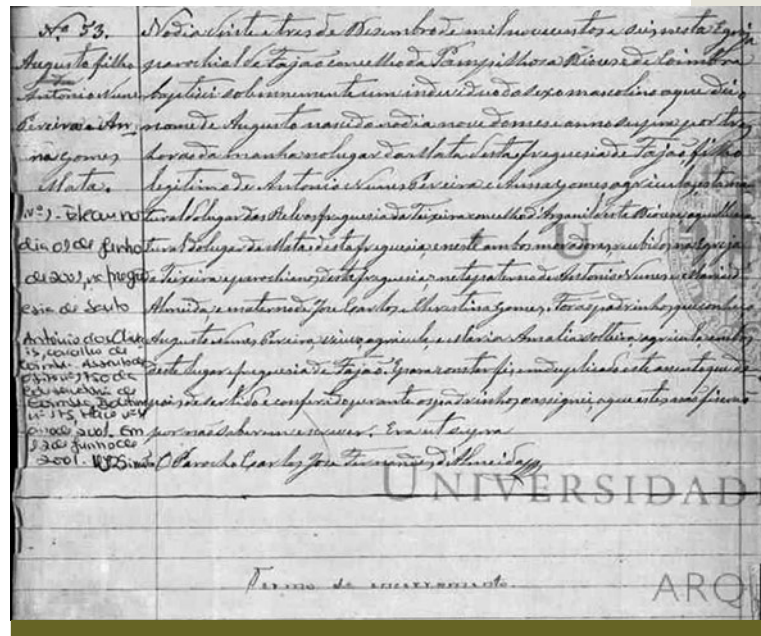 Nº 53.
Augusto filho
Antonio Nunes
Pereira e An-
na Gomes
Mata.
Nº 1 - Faleceu no
dia 01 de Junho
de 2001, na fregue
esia de Santo
António dos Olivais
is, concelho de
Coimbra. Assento de
óbito nº 750 da
Conservatória de
nº 175, Maio nº 4
de 2001. Em
12 de Junho de
2001.
No dia vinte e tres de Dezembro de mil novecentos e seis nesta Egreja
parochial de Fajão concelho da Pampilhosa Diocese de Coimbra
baptisei solemnemente um individuo do sexo masculino a que dei o
nome de Augusto nascido no dia nove do mes e anno supra por tres
horas da manha no lugar da Mata desta freguesia de Fajão, filho
legitimo de Antonio Nunes Pereira e Anna Gomes agricultores elle na
tural do lugar das Relvas freguesia da Teixeira concelho d'Arganil desta Diocese, aquella na
tural do lugar da Mata desta freguesia, e neste ambos moradores, recebidos na Egreja
da Teixeira e parochianos desta freguesia, neto paterno de Antonio Nunes e Maria d'
Almeida, e materno de Jose Carlos e Christina Gomes. Foram padrinhos que conheço
Augusto Nunes Pereira, viuvo, agricola, e Maria Amalia solteira agricola ambos
deste lugar e freguesia de Fajão. E para constar fiz em duplicado este assento que de
pois de ser lido e conferido perante os padrinhos assignei, e que estes não fizerão
por não saberem escrever. Era ut supra
O Parocho Carlos Jose Fernandes d'Almeida
UNIVERSIDADE
Termo de encerramento.
ARQ